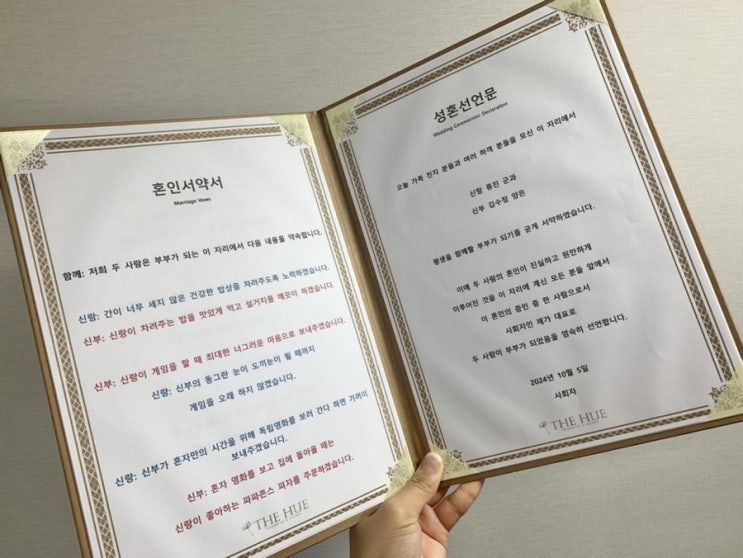 혼인서약서
Marriage Vows
함께: 저희 두 사람은 부부가 되는 이 자리에서 다음 내용을 약속합니다.
신랑: 간이 너무 세지 않은 건강한 밥상을 차려주도록 노력하겠습니다.
신부: 신랑이 차려주는 밥을 맛있게 먹고 설거지를 깨끗이 하겠습니다.
신부: 신랑이 게임을 할 때 최대한 너그러운 마음으로 보내주겠습니다.
신랑: 신부의 동그란 눈이 도끼눈이 될 때까지
게임을 오래 하지 않겠습니다.
신랑: 신부가 혼자만의 시간을 위해 독립영화를 보러 간다 하면 기꺼이
보내주겠습니다.
신부: 혼자 영화를 보고 집에 돌아올 때는
신랑이 좋아하는 파파존스 피자를 주문하겠습니다.
THE HUE
성혼선언문
Wedding Ceremonies: Declaration
오늘 가족 친지 분들과 여러 하객 분들을 모신 이 자리에서
신랑 류진 군과
신부 김수정 양은
평생을 함께할 부부가 되기를 굳게 서약하였습니다.
이에 두 사람의 혼인이 진실하고 원만하게
이루어진 것을 이 자리에 계신 모든 분들 앞에서
이 혼인의 증인 중 한 사람으로서
사회자인 제가 대표로
두 사람이 부부가 되었음을 엄숙히 선언합니다.
2024년 10월 5일
사회자
THE HUE